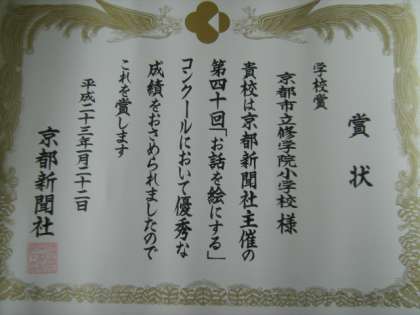 賞状
学校賞
京都市立修学院小学校 様
貴校は京都新聞社主催の
第四十回「お話を絵にする」
コンクールにおいて優秀な
成績をおさめられましたので
これを賞します
平成二十三年一月二十二日
京都新聞社